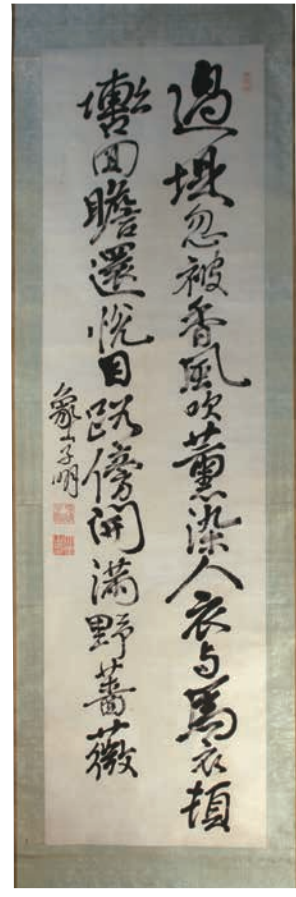 過堤忽被香風吹薰染人衣与馬衣頓
轡回瞻還悦目路傍開滿野薔薇
象山子明